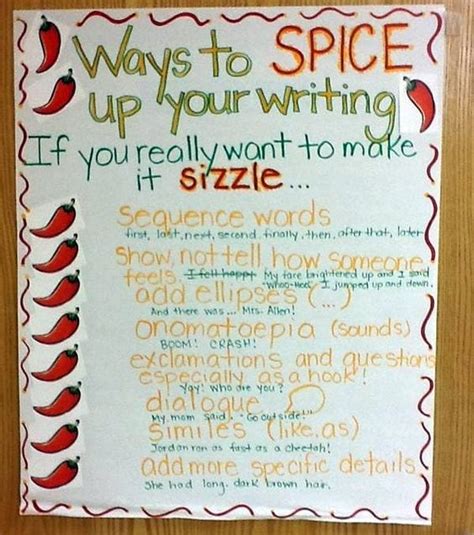 Ways to SPICE
up your writing
If you really want to make
it sizzle...
sequence words
first, last, next, second, finally, then, after that, later
show, not tell how someone
feels. I felt happy My face brightened up and I said
"Whoo-Hoo!" I jumped up and down.
add ellipses (...)
And there was... Mrs. Allen!
onomatoepia (sounds)
BOOM! CRASH!
exclamations and questions
especially as a hook!
Yay! Who are you?
dialogue
My mom said, "Go outside!"
similes (like, as)
Jordan ran as fast as a cheetah!
add more specific details
She had long, dark brown hair.